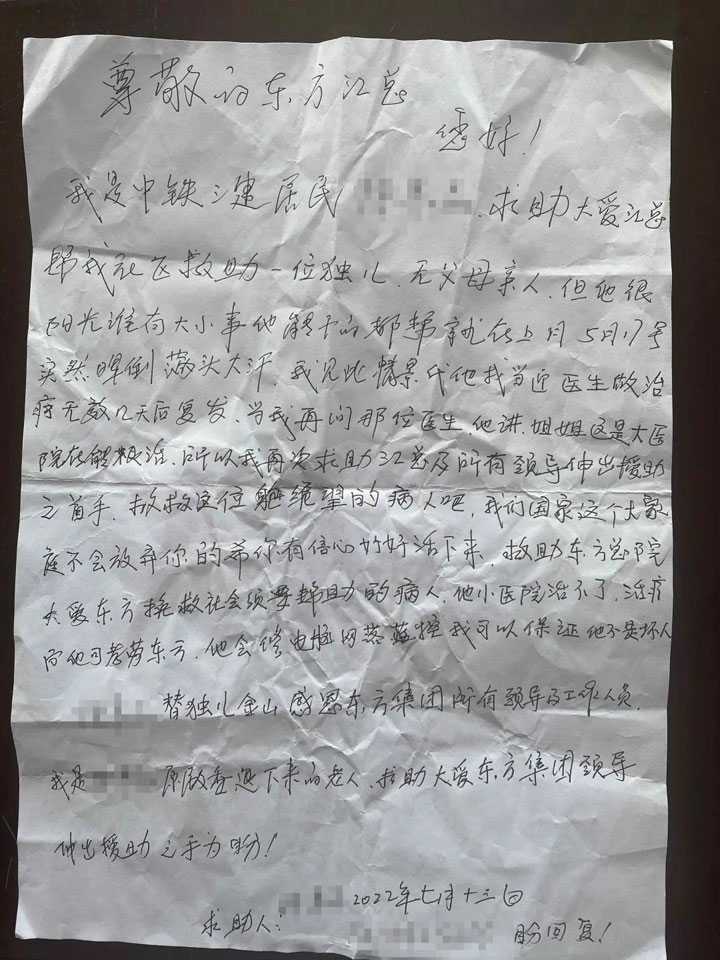 尊敬的东方江总
您好！
我是中铁三建居民 求助大爱江总
帮我社区救助一位独儿.无父母亲人.但他很
阳光谁有大小事他能干的都帮就在上月5月17号
突然晕倒满头大汗.我见此情景代他找当近医生做治
疗无效几天后复发.当我再问那位医生.他讲.姐姐这是大医
院在能根治.所以我再次求助江总及所有领导伸出援助
之首手.救救这位绝望的病人吧.我们国家这个大家
庭不会放弃你的希你有信心好好活下来.救助东方总院
大爱东方挽救社会须要帮助的病人.他小医院治不了.治疗
后他可孝劳东方.他会修电脑网络监控我可以保证他不是坏人
替独儿金山感恩东方集团所有领导及工作人员.
我是 原改委退下来的老人.求助大爱东方集团领导
伸出援助之手为盼！
2022年七月十三日
求助人： 盼回复！